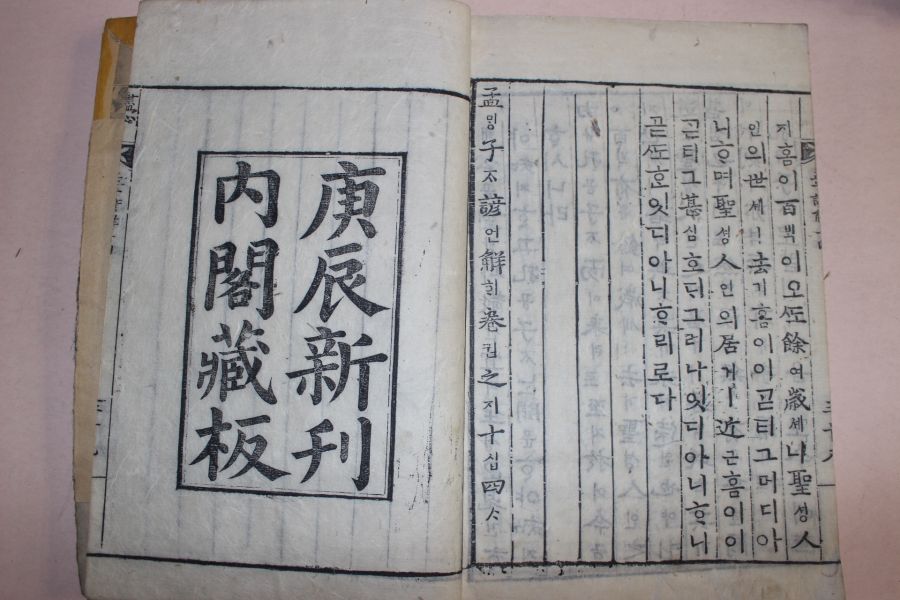 지홈이百ᄇᆡᆨ이오ᄯᅩ餘여歲셰나聖셩人
인의世셰ㅣ去거홈이이ᄀᆞᆮ티그머디아
니ᄒᆞ며聖셩人인의居거ㅣ近근홈이이
ᄀᆞᆮ티그甚심호ᄃᆡ그러나잇디아니ᄒᆞ니
곧ᄯᅩ호잇디아니ᄒᆞ리로다
孟ᄆᆡᆼ子ᄌᆞ諺언解ᄒᆡ卷권之지十십四ᄉᆞ
庚辰新刊
內閣藏板